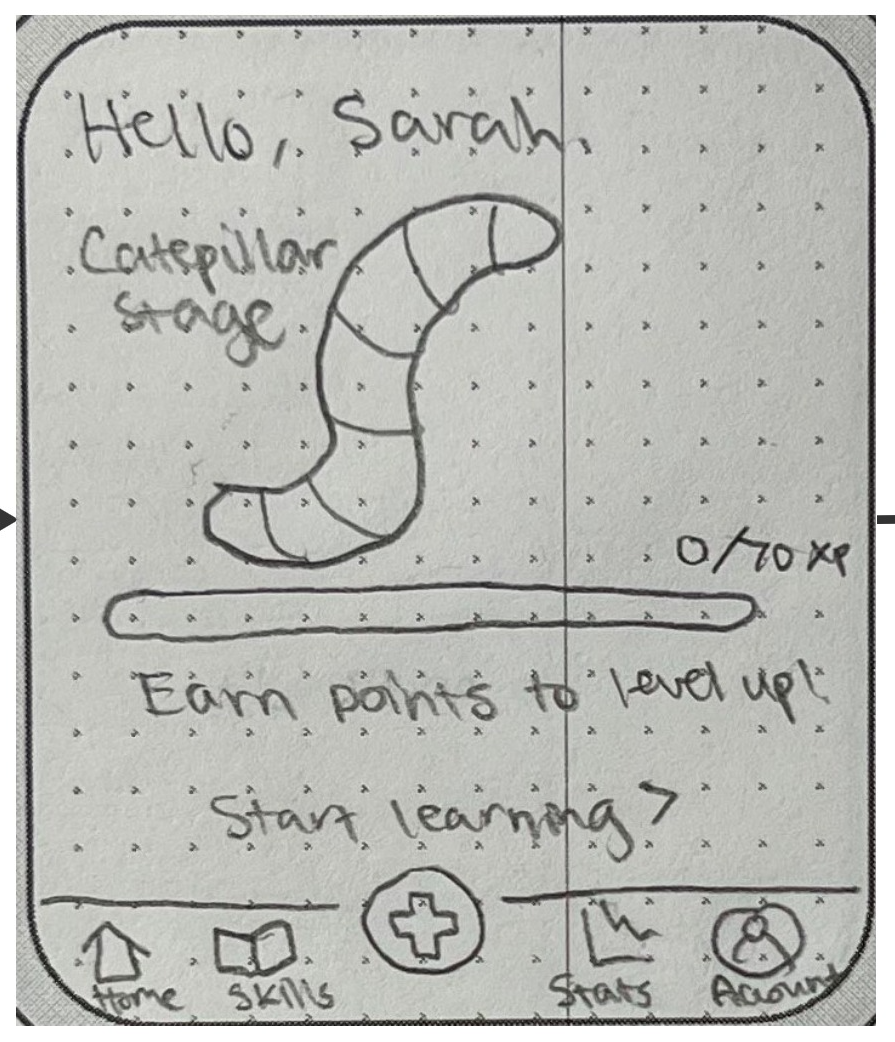 Hello, Sarah.
Catepillar
Stage
0/70 xp
Earn points to level up!
Start learning >
Home Skills Stats Account